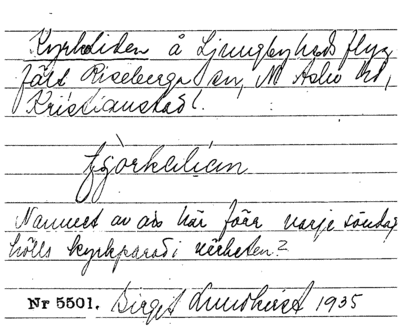 Kyrkliden å Ljungbyheds flyg
fält Riseberga sn, N Åsbo hd,
Kristianstad l.
Nammet av att här förr varje söndag
hölls kyrkparad i närheten?
Nr 5501. Birgit Lundkvist 1935